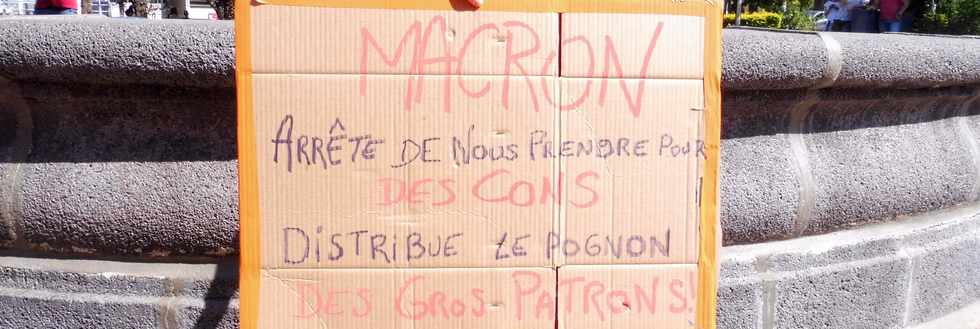 MACRON
ARRÊTE DE NOUS PRENDRE POUR
DES CONS
DISTRIBUE LE POGNON
DES GROS PATRONS!